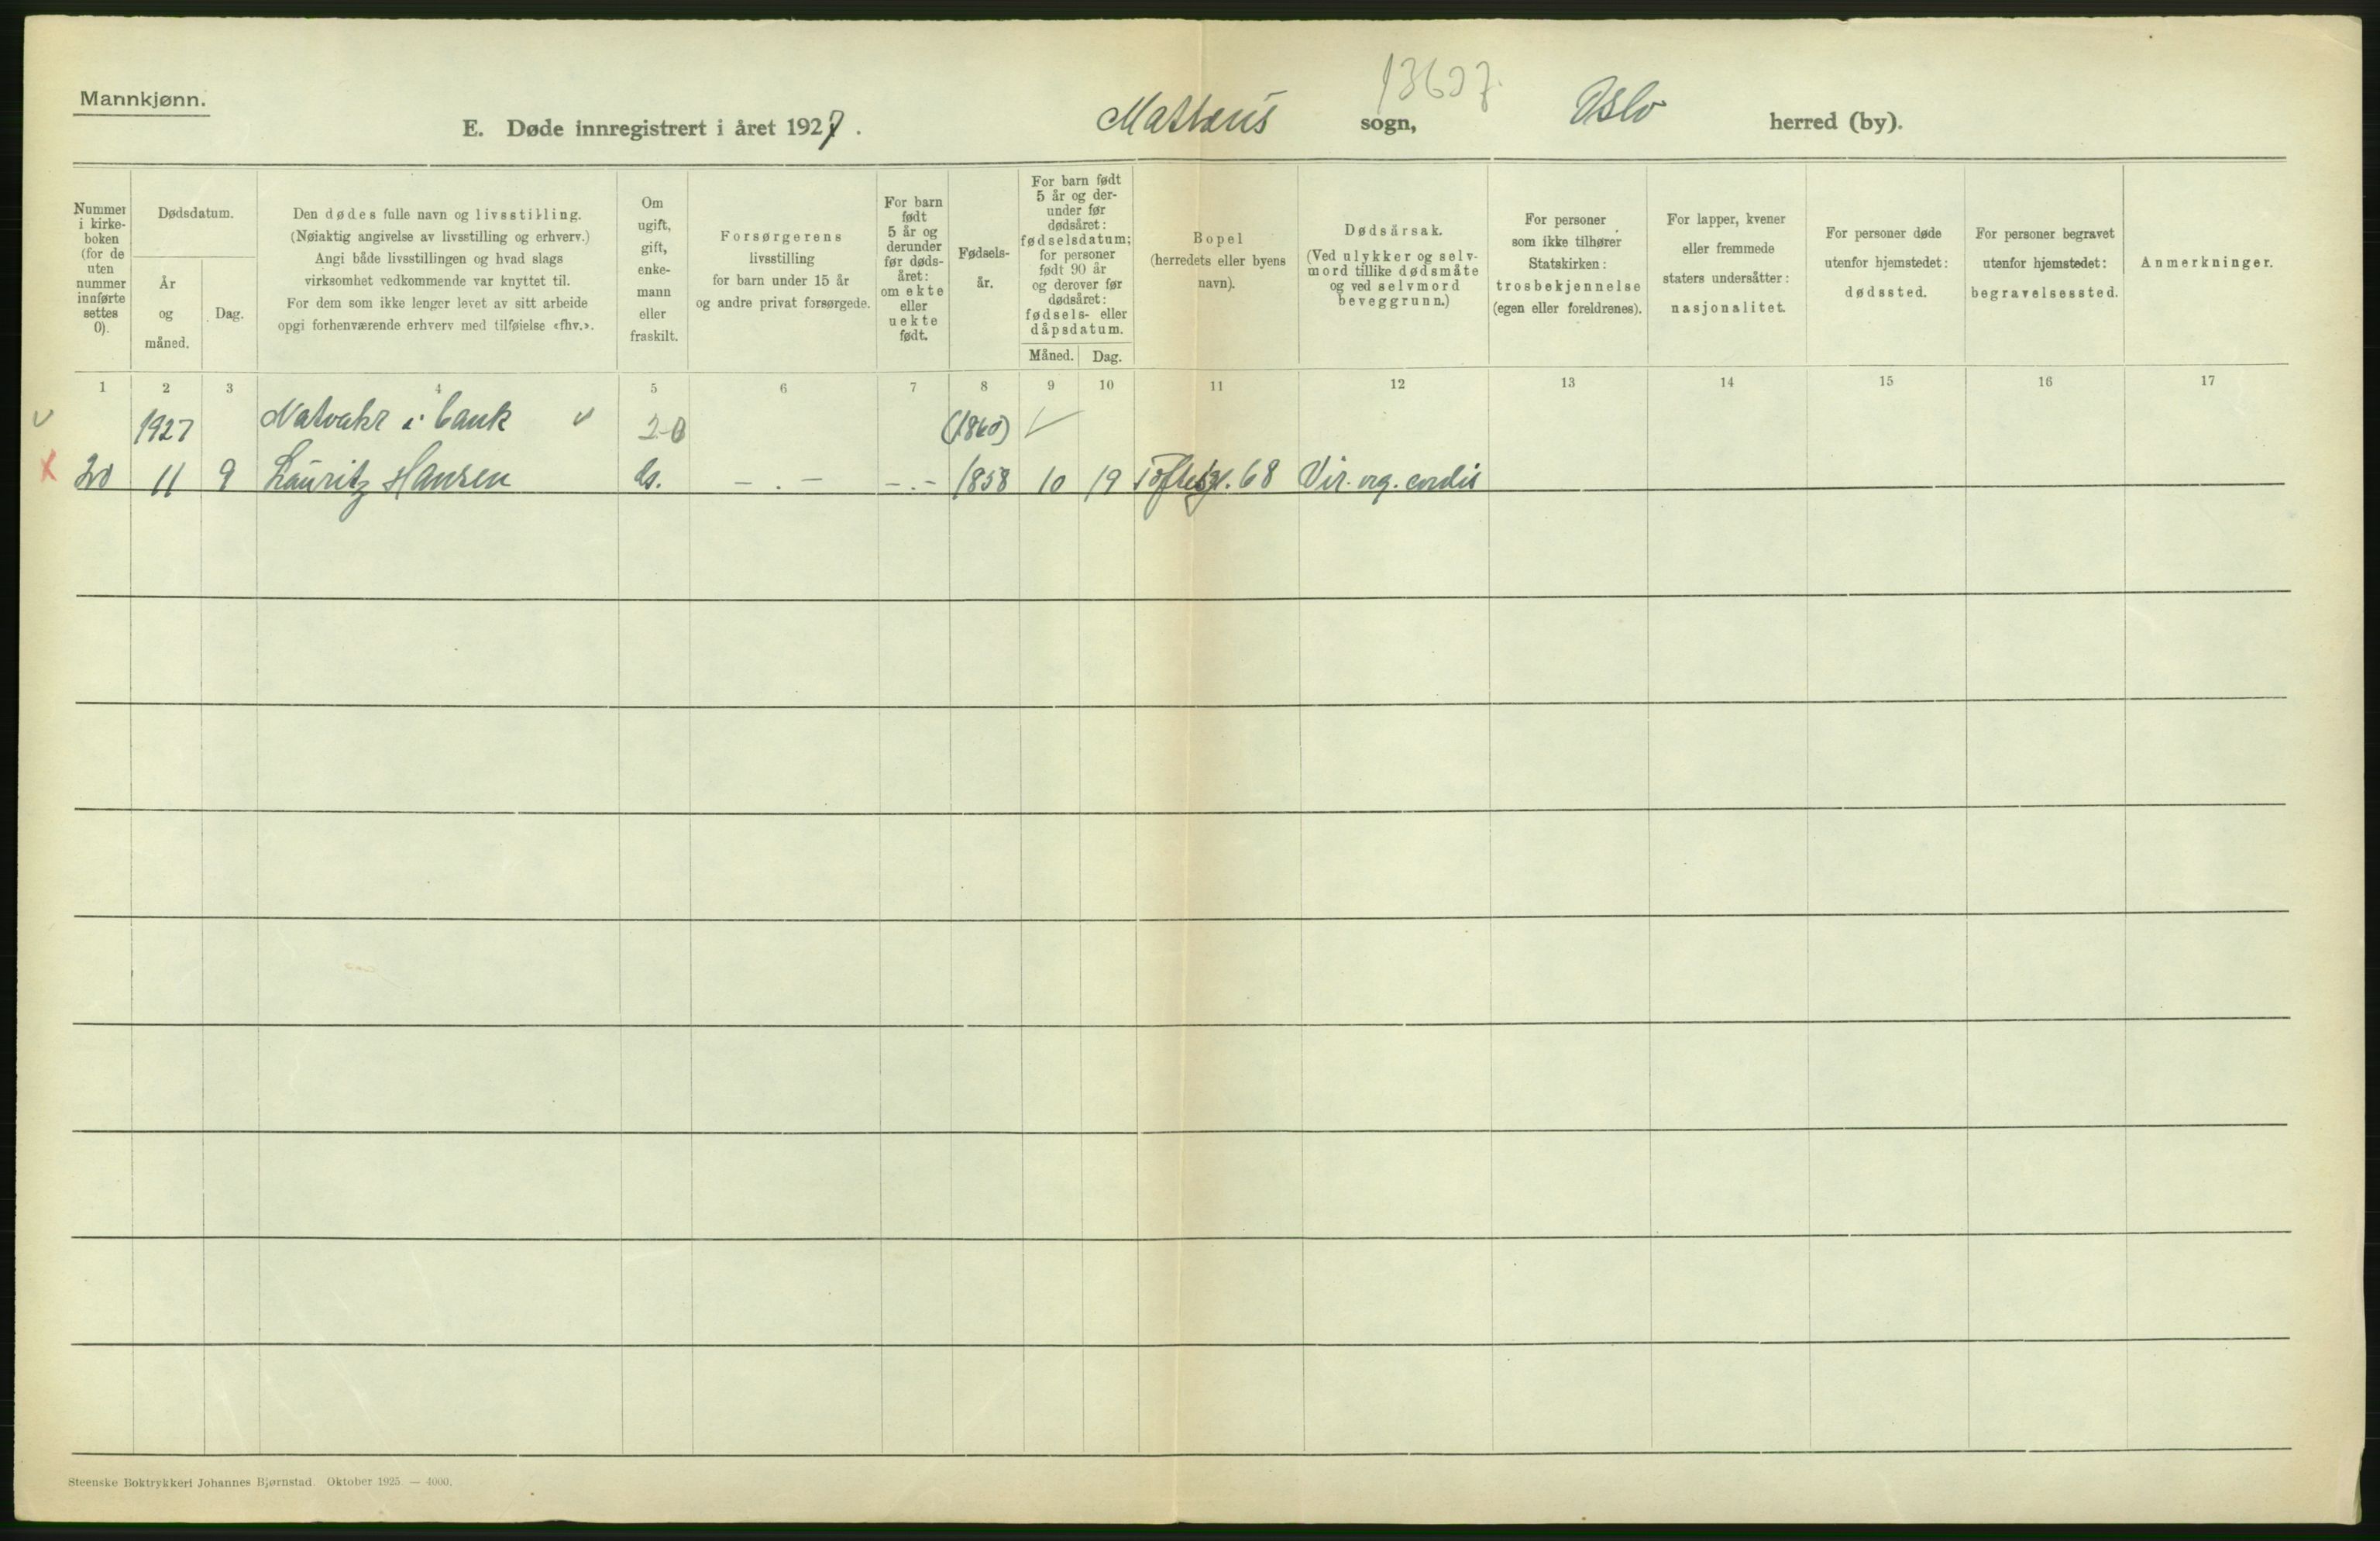 Mannkjønn.
E. Døde innregistrert i året 1927. Matteus sogn, Oslo herred (by).
Nummer i kirkeboken (for de uten nummer innførte settes 0).
Dødsdatum.
År og måned.
Dag.
Den dødes fulle navn og livsstilling.
(Nøiaktig angivelse av livsstilling og erhverv.)
Angi både livsstillingen og hvad slags
virksomhet vedkommende var knyttet til.
For dem som ikke lenger levet av sitt arbeide
opgi forhenværende erhverv med tilføielse «fhv.».
Om ugift, gift, enkemann eller fraskilt.
Forsørgerens
livsstilling
for barn under 15 år
og andre privat forsørgede.
For barn født 5 år og derunder før dødsåret: om ekte eller uekte født.
Fødselsår.
For barn født 5 år og derunder før dødsåret: fødselsdatum; for personer født 90 år og derover før dødsåret: fødsels- eller dåpsdatum.
Måned. Dag.
Bopel
(herredets eller byens
navn).
Dødsårsak.
(Ved ulykker og selvmord tillike dødsmåte og ved selvmord beveggrunn.)
For personer
som ikke tilhører
Statskirken:
trosbekjennelse
(egen eller foreldrenes).
For lapper, kvener
eller fremmede
staters undersåtter:
nasjonalitet.
For personer døde
utenfor hjemstedet:
dødssted.
For personer begravet
utenfor hjemstedet:
begravelsessted.
Anmerkninger.
1 2 3 4 5 6 7 8 9 10 11 12 13 14 15 16 17
1927 Natvakt i bank (1860)
20 11 9 Lauritz Hansen - . - - . - 1858 10 19 Toftesgt. 68 Vit. org. cordis
Steenske Boktrykkeri Johannes Bjørnstad. Oktober 1925. — 4000.